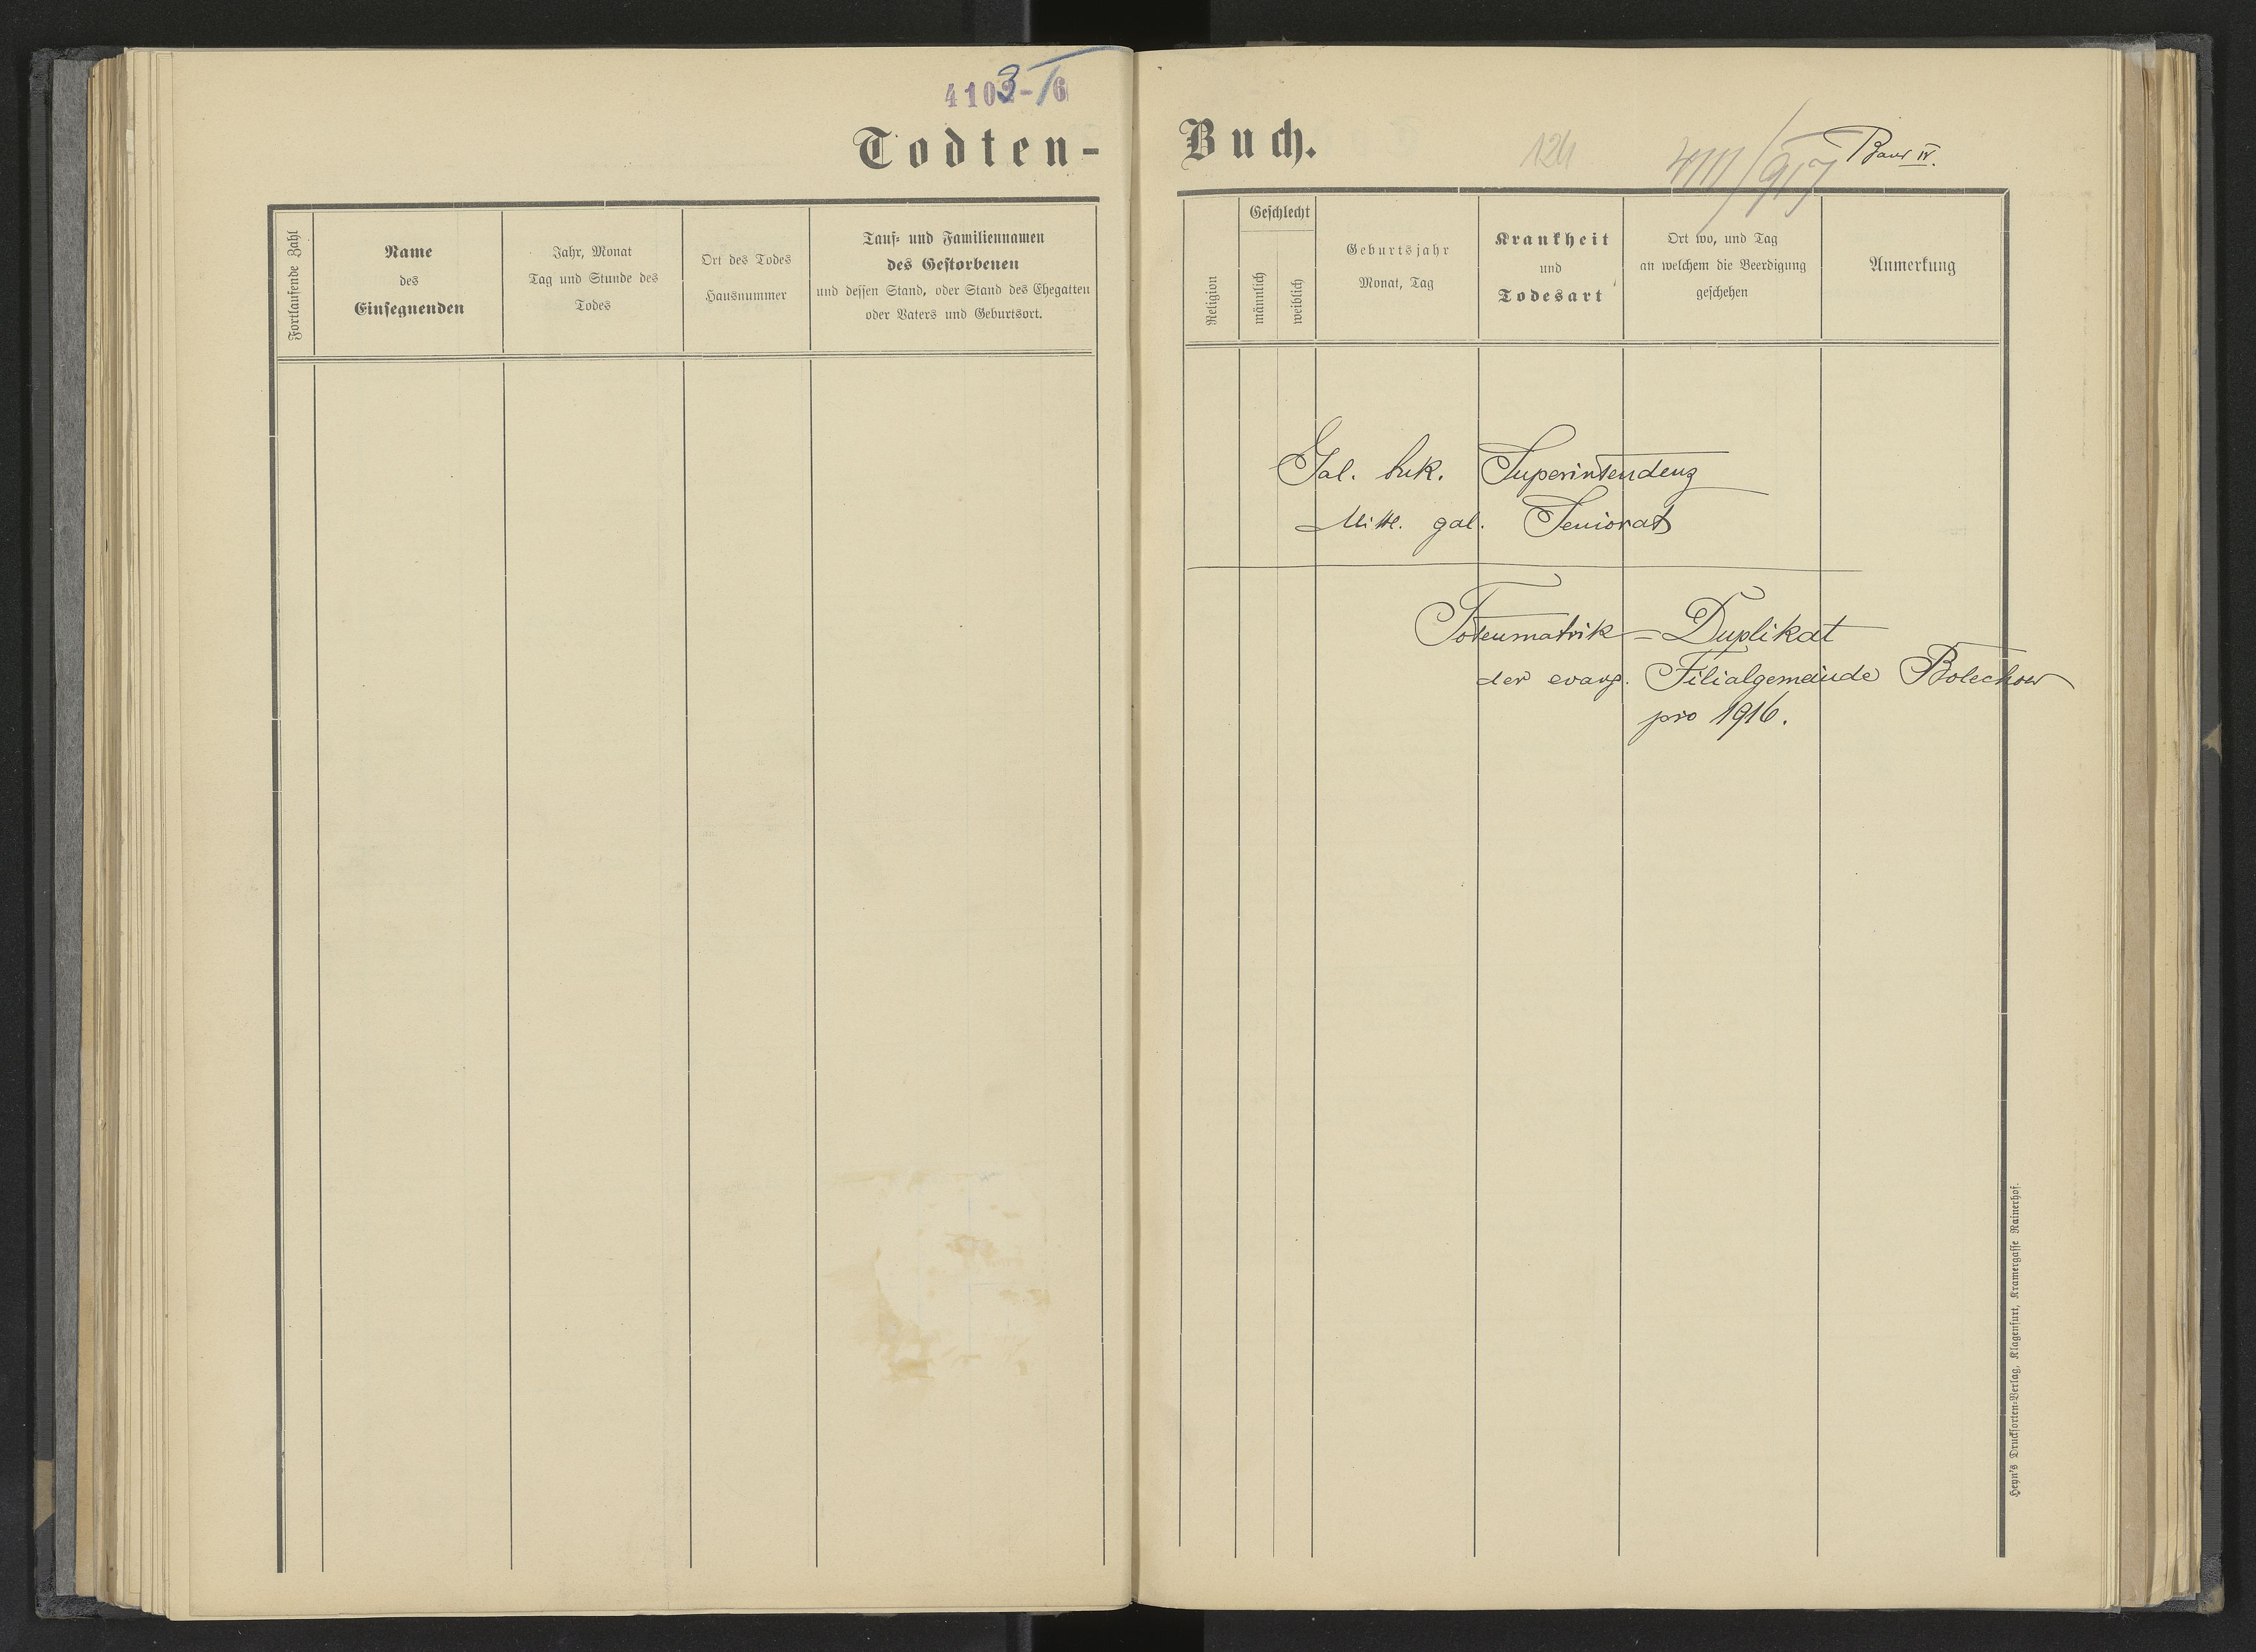 4103-16
Todten-
Fortlaufende Zahl
Name
des
Einsegnenden
Jahr, Monat
Tag und Stunde des
Todes
Ort des Todes
Hausnummer
Tauf- und Familiennamen
des Gestorbenen
und dessen Stand, oder Stand des Ehegatten
oder Vaters und Geburtsort.
Buch.
124
Band IV.
Religion
Geschlecht
männlich
weiblich
Geburtsjahr
Monat, Tag
Krankheit
und
Todesart
Ort wo, und Tag
an welchem die Beerdigung
geschehen
Anmerkung
Gal. buk. Superintendenz
Mittl. gal. Seniorat
Totenmatrik=Duplikat
der evang. Filialgemeinde Bolechow
pro 1916.
Heyn's Drucksorten-Verlag, Klagenfurt, Kramergasse Rainerhof.